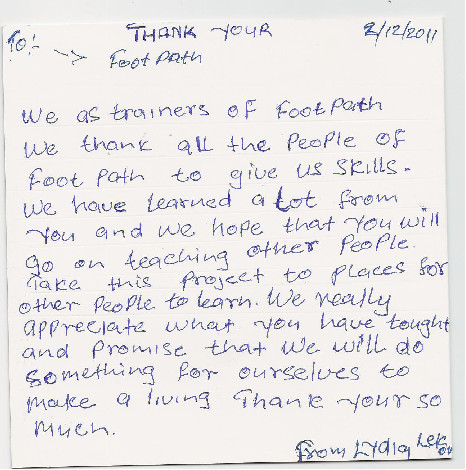 THANK YOUR 2/12/2011
To:- Foot path
We as trainers of Footpath
We thank all the People of
Foot Path to give us skills.
We have learned a Lot from
You and We hope that You will
go on teaching other People.
Take this Project to places for
other People to learn. We really
appreciate what you have tought
and Promise that We will do
something for ourselves to
make a living Thank your so
much.
From Lydia